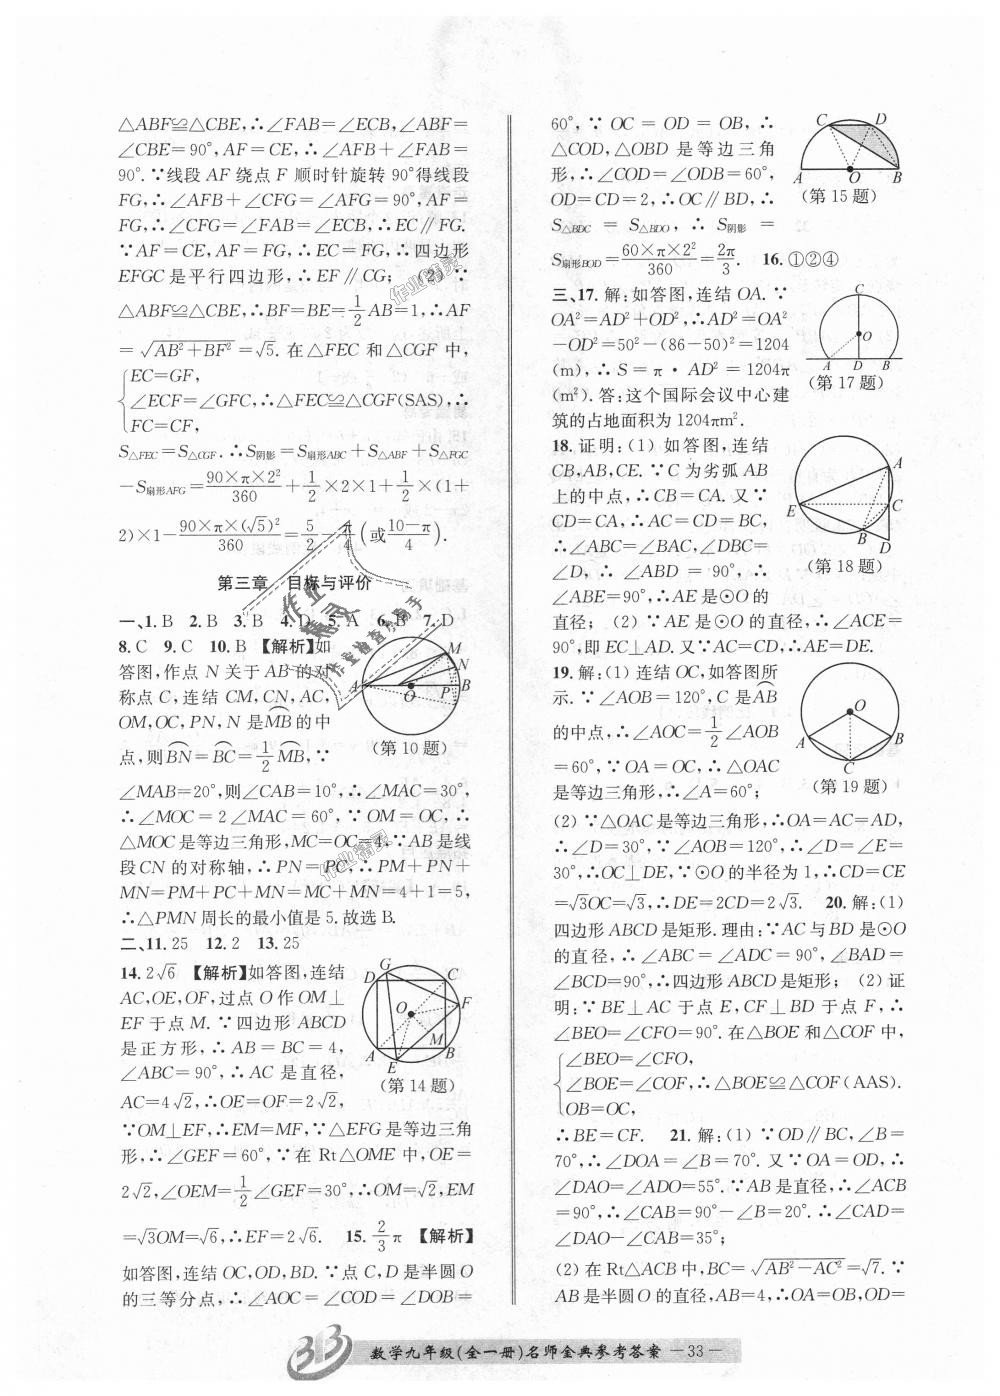 △ABF≌△CBE,∴∠FAB=∠ECB,∠ABF=
∠CBE=90°,AF=CE,∴∠AFB+∠FAB=
90°.∵线段 AF 绕点 F 顺时针旋转 90°得线段
FG,∴∠AFB+∠CFG=∠AFG=90°,AF=
FG,∴∠CFG=∠FAB=∠ECB,∴EC∥FG.
∵AF=CE,AF=FG,∴EC=FG,∴四边形
EFGC 是平行四边形,∴EF∥CG; (2) ∵
△ABF≌△CBE,∴BF=BE=1/2 AB=1,∴AF
=√(AB²+BF²)=√5. 在△FEC 和△CGF 中,
{EC=GF,
∠ECF=∠GFC,∴△FEC≌△CGF(SAS),∴
FC=CF,
S△FEC=S△CGF.∴S阴影=S扇形ABC+S△ABF+S△FGC
-S扇形AFG=(90×π×2²)/360+1/2×2×1+1/2×(1+
2)×1-(90×π×(√5)²)/360=5/2-π/4(或(10-π)/4).
第三章 目标与评价
一、1. B 2. B 3. B 4. D 5. A 6. B 7. D
8. C 9. C 10. B 【解析】如
答图,作点 N 关于 AB 的对
称点 C,连结 CM,CN,AC,
OM,OC,PN,N 是MB的中
点,则BN=BC=1/2 MB,∵
(第 10 题)
∠MAB=20°,则∠CAB=10°,∴∠MAC=30°,
∴∠MOC=2∠MAC=60°,∵OM=OC,∴
△MOC 是等边三角形,MC=OC=4.∵AB 是线
段CN 的对称轴,∴PN=PC,∴PM+PN+
MN=PM+PC+MN=MC+MN=4+1=5,
∴△PMN 周长的最小值是 5.故选 B.
二、11. 25 12. 2 13. 25
14. 2√6 【解析】如答图,连结
AC,OE,OF,过点 O 作 OM⊥
EF 于点 M.∵四边形 ABCD
是正方形,∴AB=BC=4,
∠ABC=90°,∴AC 是直径,
AC=4√2,∴OE=OF=2√2,
(第 14 题)
∵OM⊥EF,∴EM=MF,∵△EFG 是等边三角
形,∴∠GEF=60°,∵在 Rt△OME 中,OE=
2√2,∠OEM=1/2∠GEF=30°,∴OM=√2,EM
=√3OM=√6,∴EF=2√6. 15. 2/3 π 【解析】
如答图,连结 OC,OD,BD.∵点 C,D 是半圆 O
的三等分点,∴∠AOC=∠COD=∠DOB=
60°,∵OC=OD=OB,∴
△COD,△OBD 是等边三角
形,∴∠COD=∠ODB=60°,
OD=CD=2,∴OC∥BD,∴
S△BDC=S△BDO,∴S阴影=
(第 15 题)
S扇形BOD=(60×π×2²)/360=2π/3. 16. ①②④
三、17. 解:如答图,连结 OA.∵
OA²=AD²+OD²,∴AD²=OA²
-OD²=50²-(86-50)²=1204
(m),∴S=π·AD²=1204π
(m²). 答:这个国际会议中心建
筑的占地面积为 1204πm².
(第 17 题)
18. 证明:(1) 如答图,连结
CB,AB,CE.∵C 为劣弧 AB
上的中点,∴CB=CA. 又∵
CD=CA,∴AC=CD=BC,
∴∠ABC=∠BAC,∠DBC=
∠D,∴∠ABD=90°,∴
∠ABE=90°,∴AE 是⊙O 的
(第 18 题)
直径; (2)∵AE 是⊙O 的直径,∴∠ACE=
90°,即 EC⊥AD. 又∵AC=CD,∴AE=DE.
19. 解:(1) 连结 OC,如答图所
示.∵∠AOB=120°,C 是AB
的中点,∴∠AOC=1/2∠AOB
=60°,∵OA=OC,∴△OAC
是等边三角形,∴∠A=60°;
(第 19 题)
(2) ∵△OAC 是等边三角形,∴OA=AC=AD,
∴∠D=30°,∵∠AOB=120°,∴∠D=∠E=
30°,∴OC⊥DE,∵⊙O 的半径为 1,∴CD=CE
=√3OC=√3,∴DE=2CD=2√3. 20. 解:(1)
四边形 ABCD 是矩形. 理由:∵AC 与 BD 是⊙O
的直径,∴∠ABC=∠ADC=90°,∠BAD=
∠BCD=90°,∴四边形 ABCD 是矩形; (2) 证
明:∵BE⊥AC 于点 E,CF⊥BD 于点 F,∴
∠BEO=∠CFO=90°. 在△BOE 和△COF 中,
{∠BEO=∠CFO,
∠BOE=∠COF,∴△BOE≌△COF(AAS).
OB=OC,
∴BE=CF. 21. 解:(1) ∵OD∥BC,∠B=
70°,∴∠DOA=∠B=70°. 又∵OA=OD,∴
∠DAO=∠ADO=55°.∵AB 是直径,∴∠ACB
=90°,∴∠CAB=90°-∠B=20°.∴∠CAD=
∠DAO-∠CAB=35°;
(2) 在 Rt△ACB 中,BC=√(AB²-AC²)=√7.∵
AB 是半圆 O 的直径,AB=4,∴OA=OB,OD=
数学九年级(全一册)名师金典参考答案 —33—